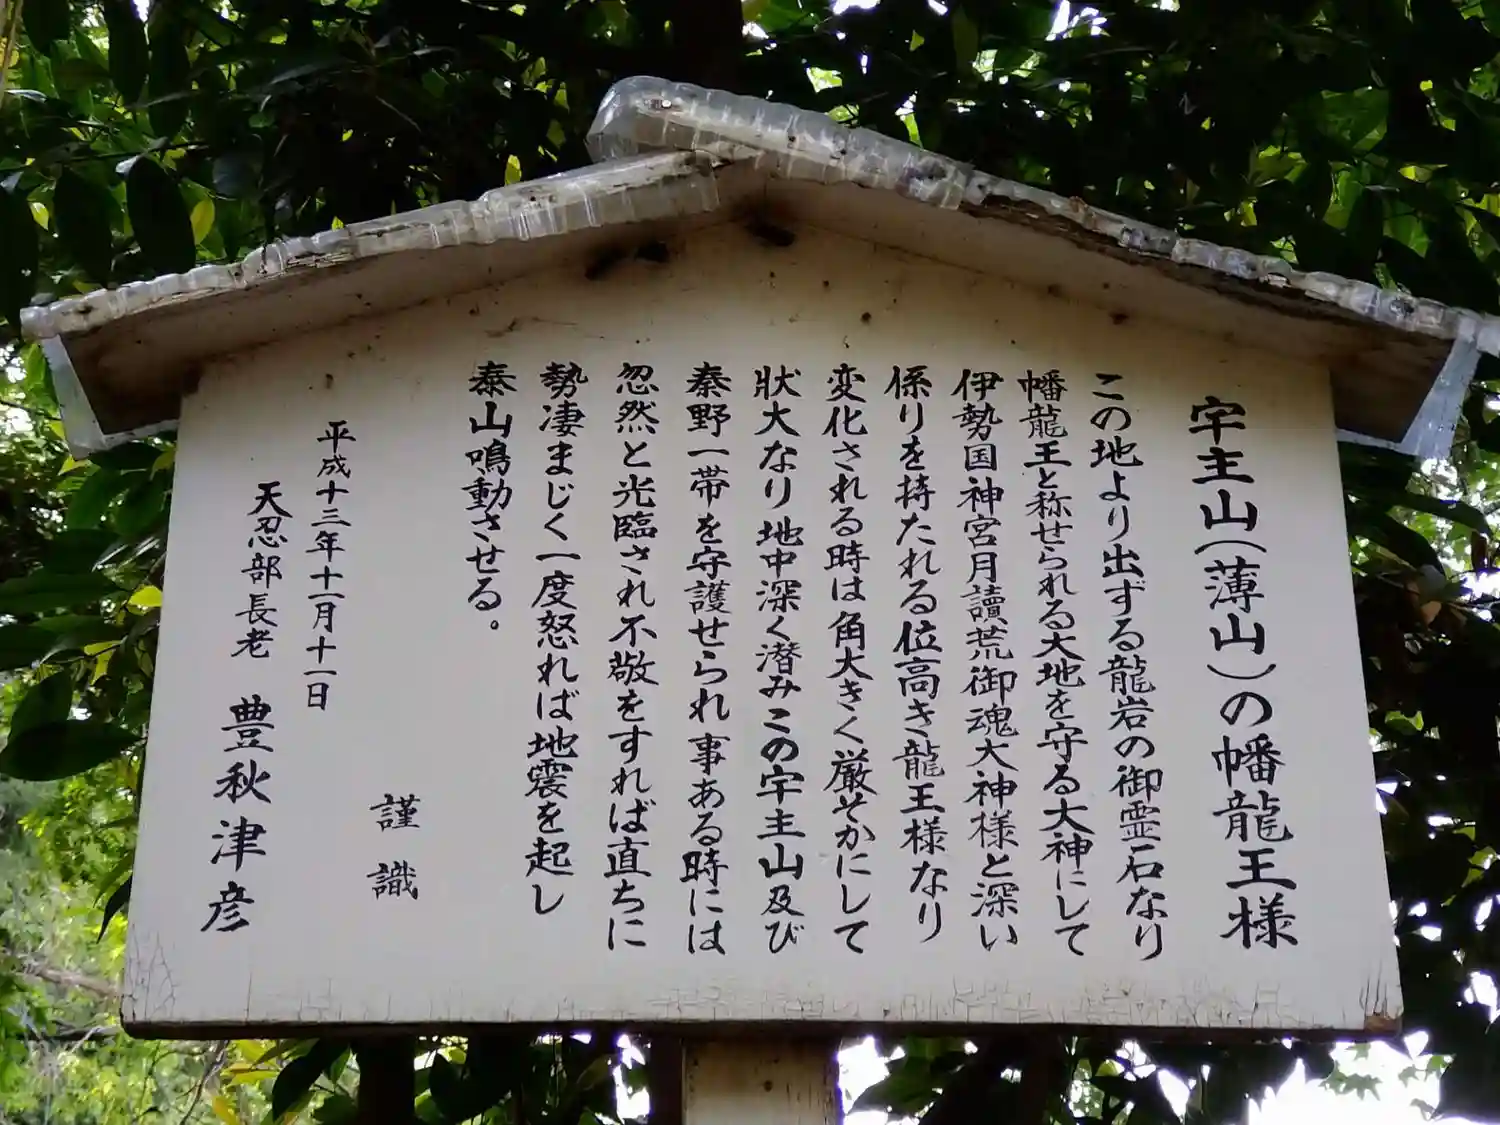 宇主山(薄山)の幡龍王様
この地より出ずる龍岩の御霊石なり
幡龍王と称せられる大地を守る大神にして
伊勢国神宮月讀荒御魂大神様と深い
係りを持たれる位高き龍王様なり
変化される時は角大きく厳そかにして
状大なり地中深く潜みこの宇主山及び
秦野一帯を守護せられ事ある時には
忽然と光臨され不敬をすれば直ちに
勢凄まじく一度怒れば地震を起し
泰山鳴動させる。
謹識
平成十三年十一月十一日
天忍部長老 豊秋津彦